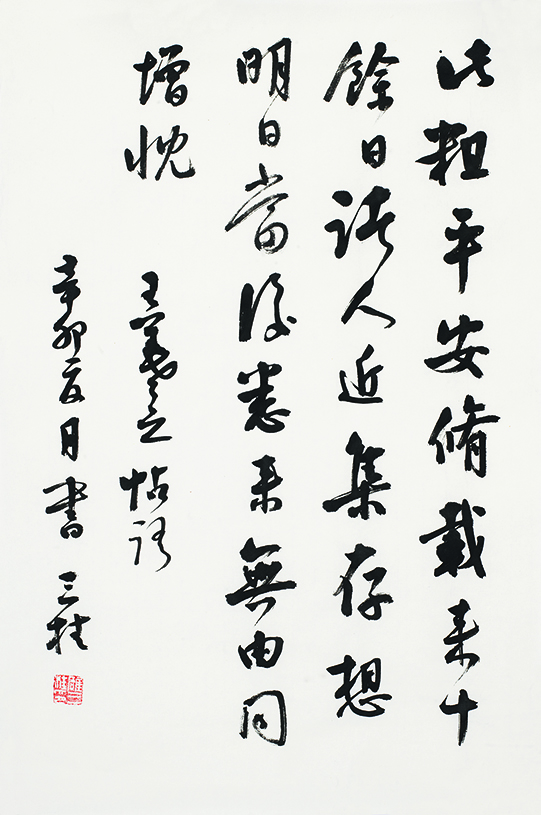 此粗平安脩載来十
餘日諸人近集存想
明日當復悉来無由同
增慨
王羲之帖語
辛卯夏月書 三桂